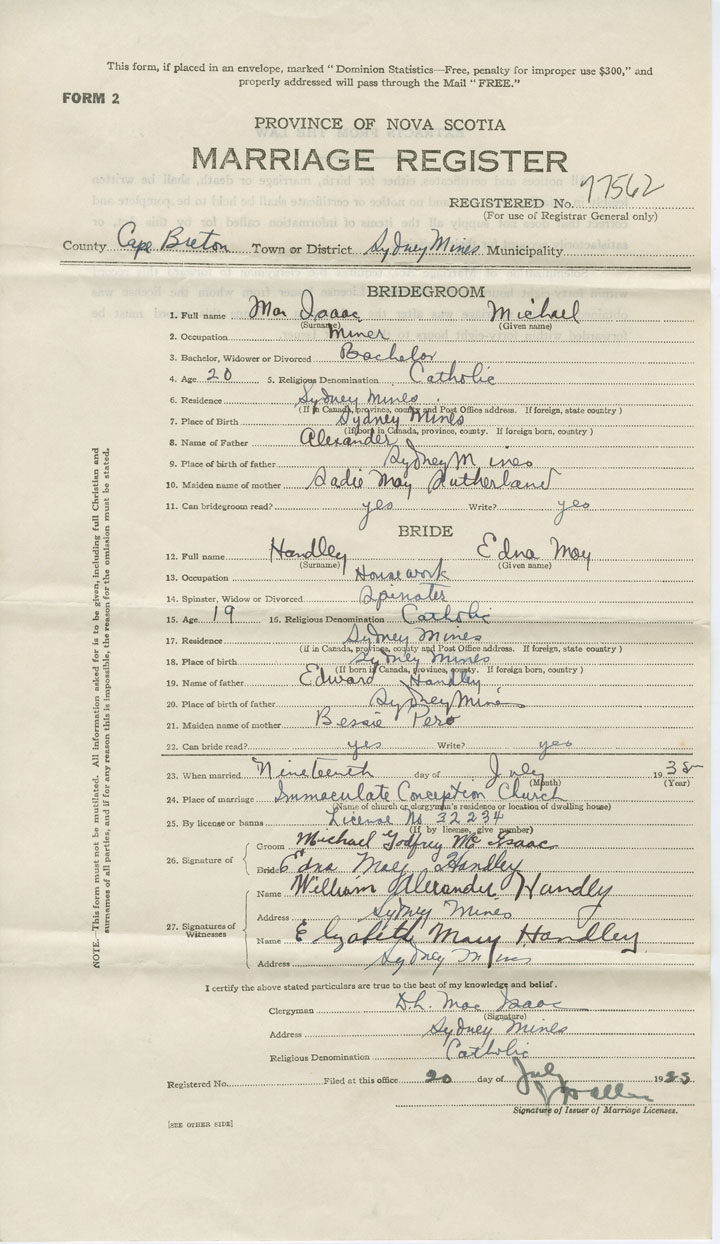 This form, if placed in an envelope, marked " Dominion Statistics—Free, penalty for improper use $300," and
properly addressed will pass through the Mail "FREE."
FORM 2
PROVINCE OF NOVA SCOTIA
MARRIAGE REGISTER
REGISTERED No. 77562
(For use of Registrar General only)
County Cape Breton Town or District Sydney Mines Municipality
BRIDEGROOM
1. Full name Mac Isaac Michael
(Surname) (Given name)
2. Occupation Miner
3. Bachelor, Widower or Divorced Bachelor
4. Age 20 5. Religious Denomination Catholic
6. Residence Sydney Mines
(If in Canada, province, county and Post Office address. If foreign, state country )
7. Place of Birth Sydney Mines
(If born in Canada, province, county. If foreign born, country )
8. Name of Father Alexander
9. Place of birth of father Sydney Mines
10. Maiden name of mother Sadie May Sutherland
11. Can bridegroom read? yes Write? yes
BRIDE
12. Full name Handley Edna May
(Surname) (Given name)
13. Occupation Housework
14. Spinster, Widow or Divorced Spinster
15. Age 19 16. Religious Denomination Catholic
17. Residence Sydney Mines
(if in Canada, province, county and Post Office address. If foreign, state country )
18. Place of birth Sydney Mines
(If born in Canada, province, county. If foreign born, country )
19. Name of father Edward Handley
20. Place of birth of father Sydney Mines
21. Maiden name of mother Bessie Pero
22. Can bride read? yes Write? yes
23. When married Nineteenth day of July 1938
(Month) (Year)
24. Place of marriage Immaculate Conception Church
(Name of church or clergyman's residence or location of dwelling house)
25. By license or banns License No 32234
(If by license, give number)
26. Signature of Groom Michael Godfrey Mc Isaac
Bride Edna May Handley
27. Signatures of Witnesses Name William Alexander Handly
Address Sydney Mines
Name Elizabeth Mary Handley
Address Sydney Mines
NOTE.—This form must not be mutilated. All information asked for is to be given, including full Christian and
surnames of all parties, and if for any reason this is impossible, the reason for the omission must be stated.
I certify the above stated particulars are true to the best of my knowledge and belief.
Clergyman D.h. Mac Isaac
(Signature)
Address Sydney Mines
Religious Denomination Catholic
Registered No. Filed at this office 20 day of July 19
Signature of Issuer of Marriage Licenses.
[SEE OTHER SIDE]